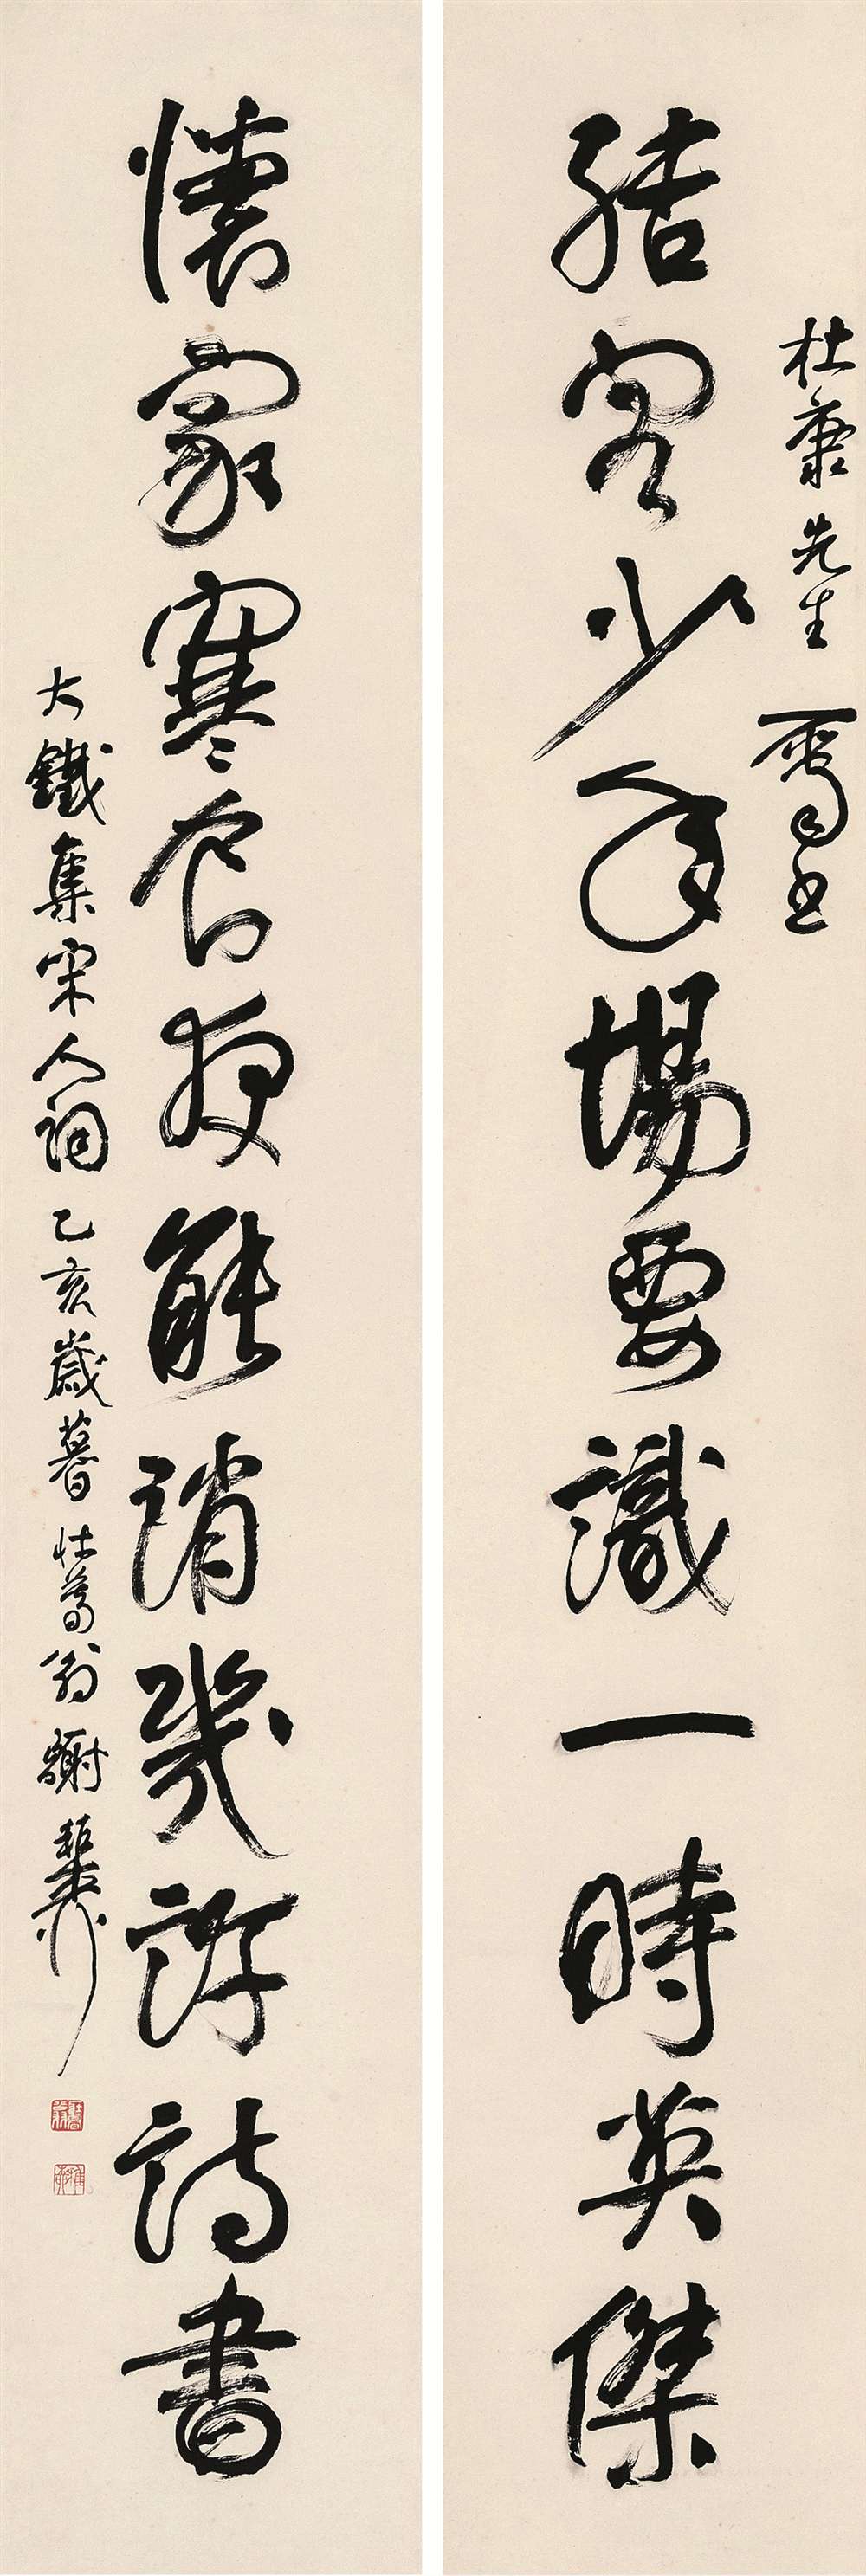 結客少年場要識一時英傑
杜兼先生 屬書
懷家寒食夜能消幾許詩書
大鐵集宋人詞乙亥歲暮壯暮翁謝稚柳